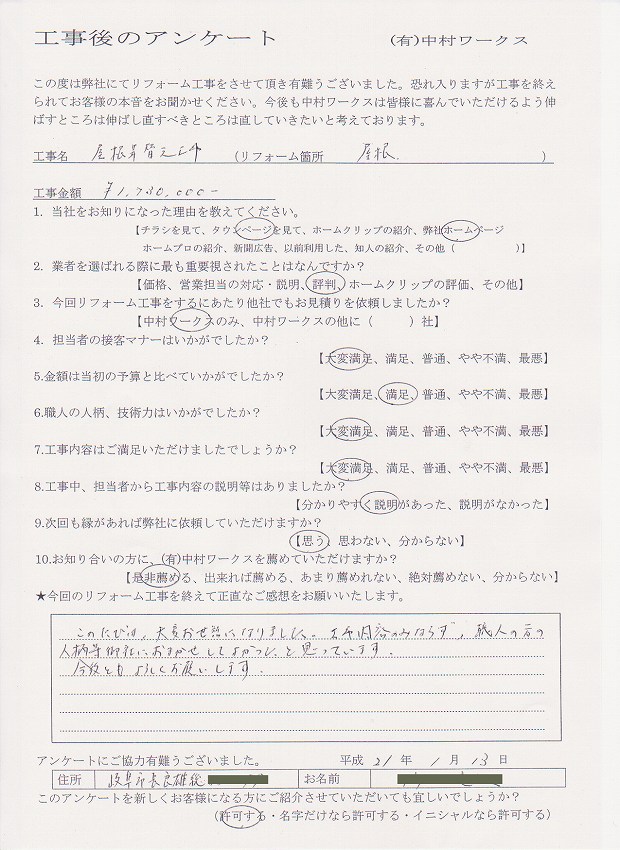 工事後のアンケート　(有)中村ワークス
この度は弊社にてリフォーム工事をさせて頂き有難うございました。恐れ入りますが工事を終え
られてお客様の本音をお聞かせください。今後も中村ワークスは皆様に喜んでいただけるよう伸
ばすところは伸ばし直すべきところは直していきたいと考えております。
工事名　屋根葺替え工事　(リフォーム箇所　屋根.　)
工事金額　¥1,730,000-
1. 当社をお知りになった理由を教えてください。
【チラシを見て、タウンページを見て、ホームクリップの紹介、弊社ホームページ
ホームプロの紹介、新聞広告、以前利用した、知人の紹介、その他（　　　）】
2. 業者を選ばれる際に最も重要視されたことはなんですか？
【価格、営業担当の対応・説明、評判、ホームクリップの評価、その他】
3. 今回リフォーム工事をするにあたり他社でもお見積りを依頼しましたか？
【中村ワークスのみ、中村ワークスの他に（　　）社】
4. 担当者の接客マナーはいかがでしたか？
【大変満足、満足、普通、やや不満、最悪】
5.金額は当初の予算と比べていかがでしたか？
【大変満足、満足、普通、やや不満、最悪】
6.職人の人柄、技術力はいかがでしたか？
【大変満足、満足、普通、やや不満、最悪】
7.工事内容はご満足いただけましたでしょうか？
【大変満足、満足、普通、やや不満、最悪】
8.工事中、担当者から工事内容の説明等はありましたか？
【分かりやすく説明があった、説明がなかった】
9.次回も縁があれば弊社に依頼していただけますか？
【思う、思わない、分からない】
10.お知り合いの方に、(有)中村ワークスを薦めていただけますか？
【是非薦める、出来れば薦める、あまり薦めれない、絶対薦めない、分からない】
★今回のリフォーム工事を終えて正直なご感想をお願いいたします。
このたびは、大変お世話になりました。工事内容のみならず、職人の方の
人柄等御社におまかせしてよかった、と思っています.
今後ともよろしくお願いします.
アンケートにご協力有難うございました。　平成 21 年 1 月 13 日
住所　岐阜市長良雄総　お名前
このアンケートを新しくお客様になる方にご紹介させていただいても宜しいでしょうか？
(許可する・名字だけなら許可する・イニシャルなら許可する)